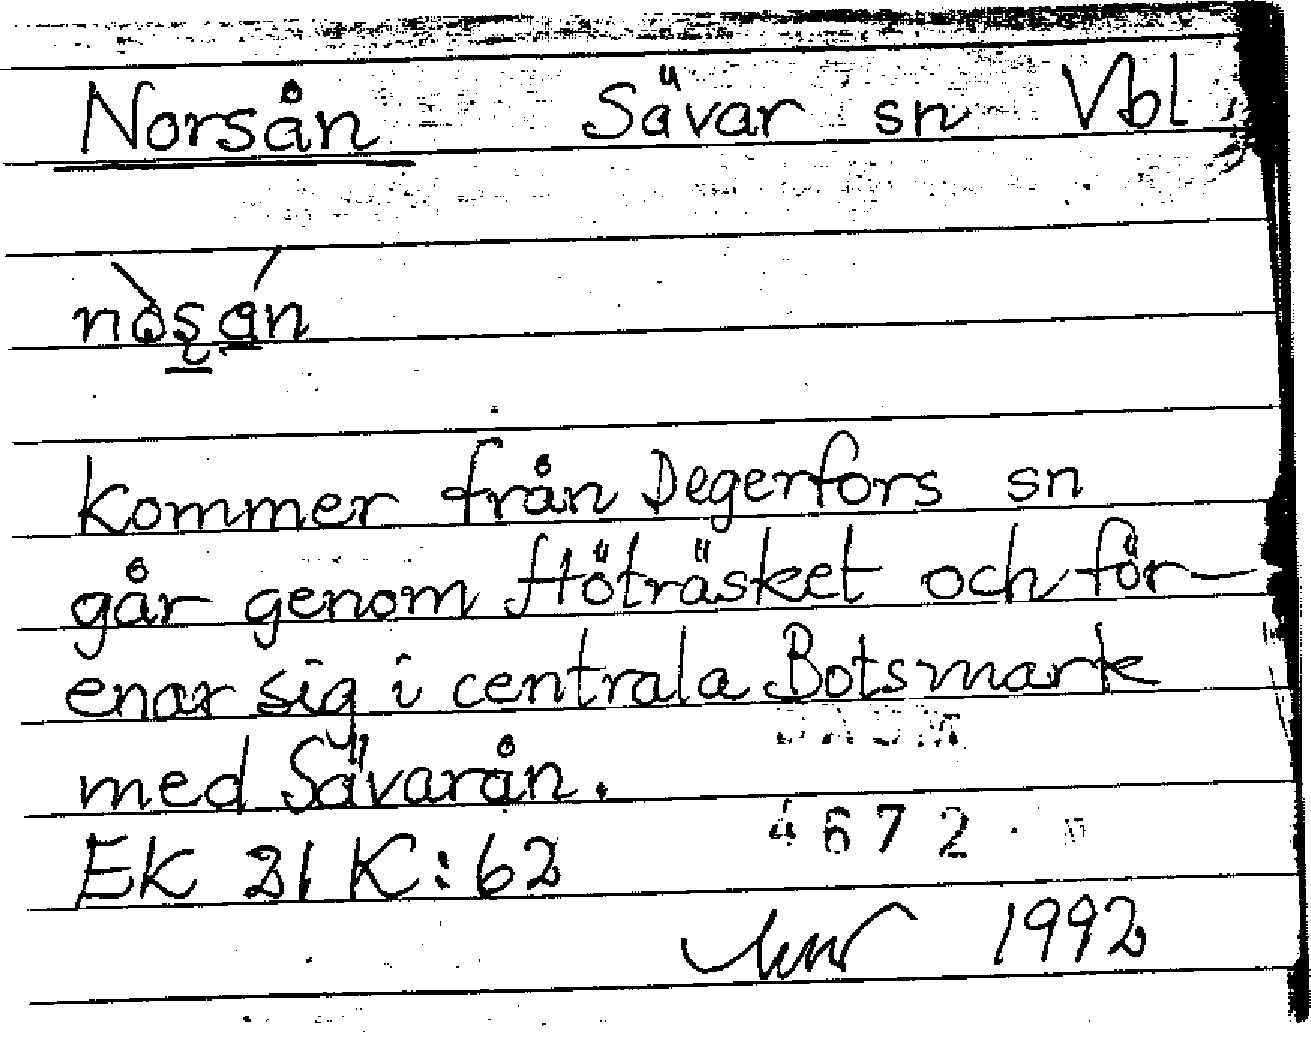 Norsån Sävar sn Vbl.
kommer från Degerfors sn
går genom Höträsket och för-
enar sig i centrala Botsmark
med Sävarån.
DAUM
EK 21 K:62
4672
1992